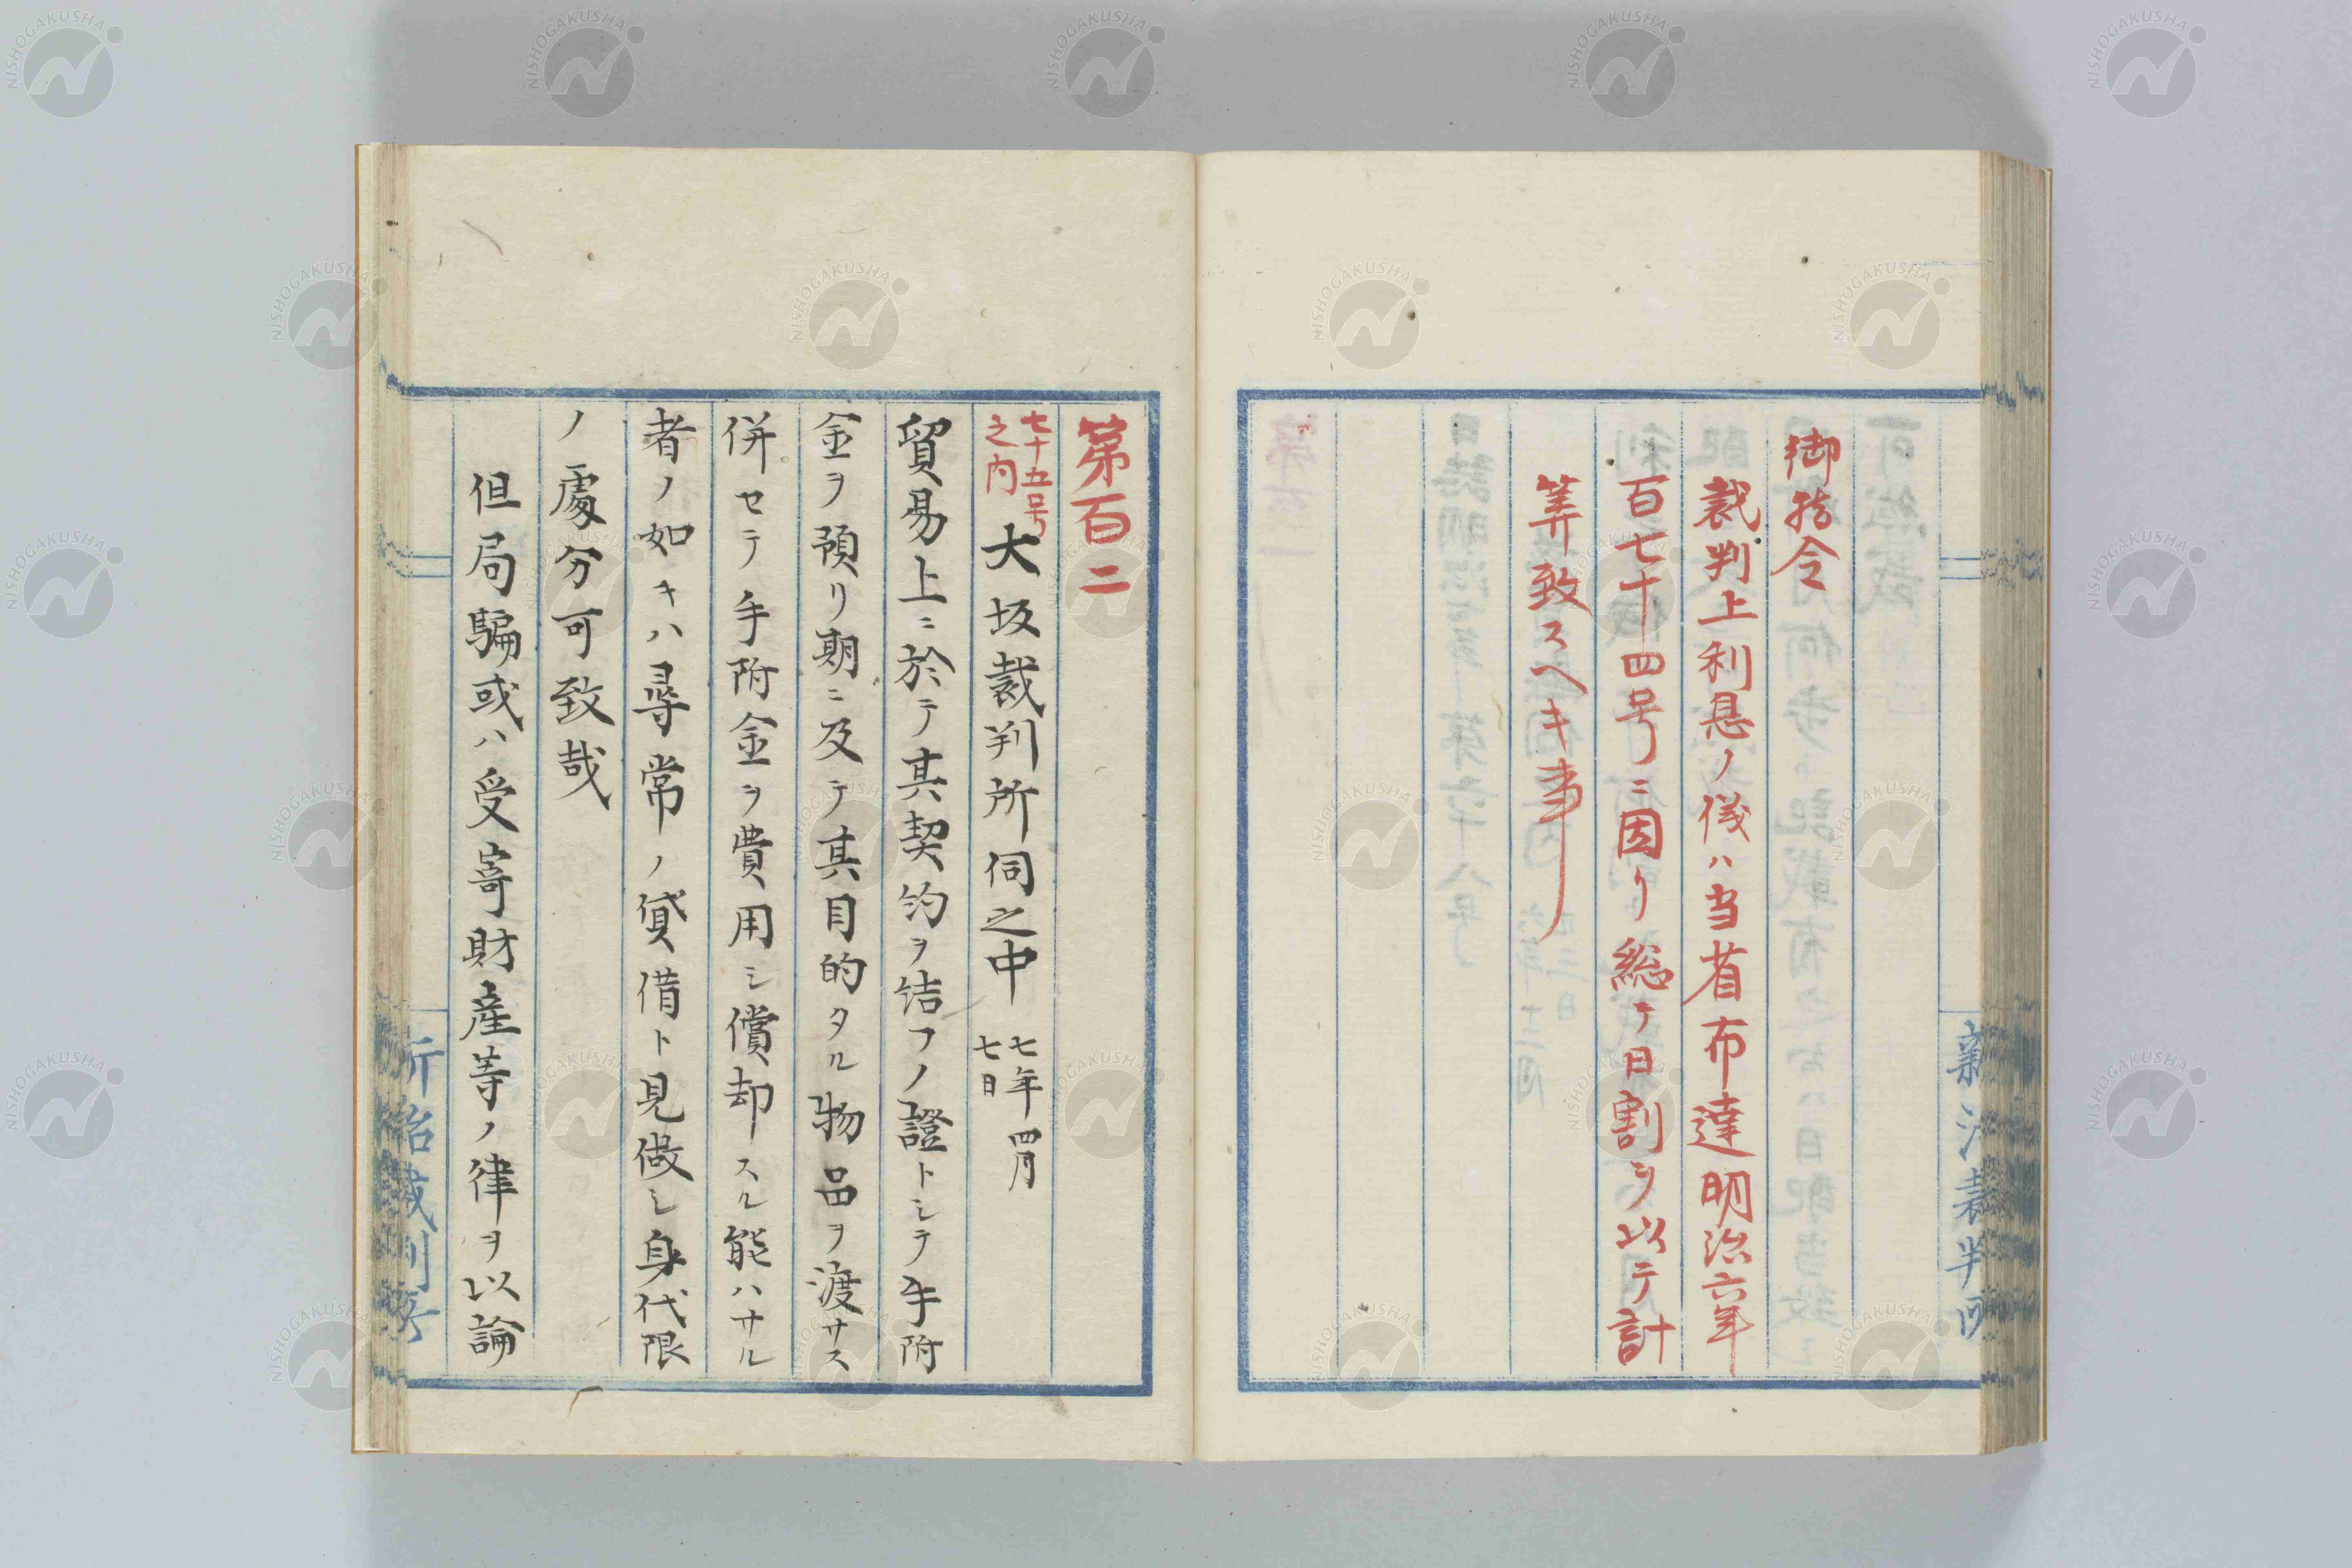 御指令
裁判上利息ノ儀ハ当省布達明治六年
百七十四号ニ因リ総テ日割ヲ以テ計
筭致スヘキ事
第百二
七十五号
之内
大坂裁判所伺之中
七年四月
七日
貿易上ニ於テ其契約ヲ結フノ證トシテ手附
金ヲ預リ期ニ及テ其目的タル物品ヲ渡サス
併セテ手附金ヲ費用シ償却スル能ハサル
者ノ如キハ尋常ノ貸借ト見做シ身代限
ノ處分可致哉
但局騙或ハ受寄財産等ノ律ヲ以論